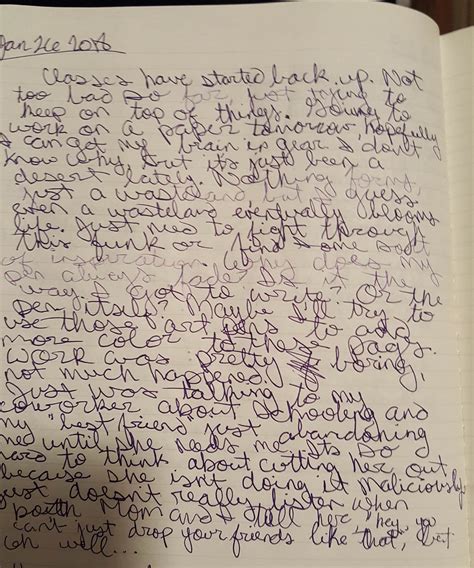 Jan 26 2016
Classes have started back up. Not
too bad so far just trying to
keep on top of things. Going to
work on a paper tomorrow, hopefully
I can get my brain in gear I don't
know why, but it's just been a
desert lately. Nothing forms,
just a wasteland but I guess
even a wasteland eventually blooms
life. Just need to fight through
this funk or find some sort
of inspiration. Why does my
pen always fade? Is it the
way I got to write? Or the
pen itself? Maybe I'll try to
use those art pens to add
more color to these pages.
Work was pretty boring,
not much happened.
Just was talking to my
coworker about schooling and
my "best friend" just abandoning
me until she needs me. It's so
hard to think about cutting her out
because she isn't doing it maliciously
just doesn't really listen when
both Mom and I tell her, "hey, you
can't just drop your friends like that", but
oh well...